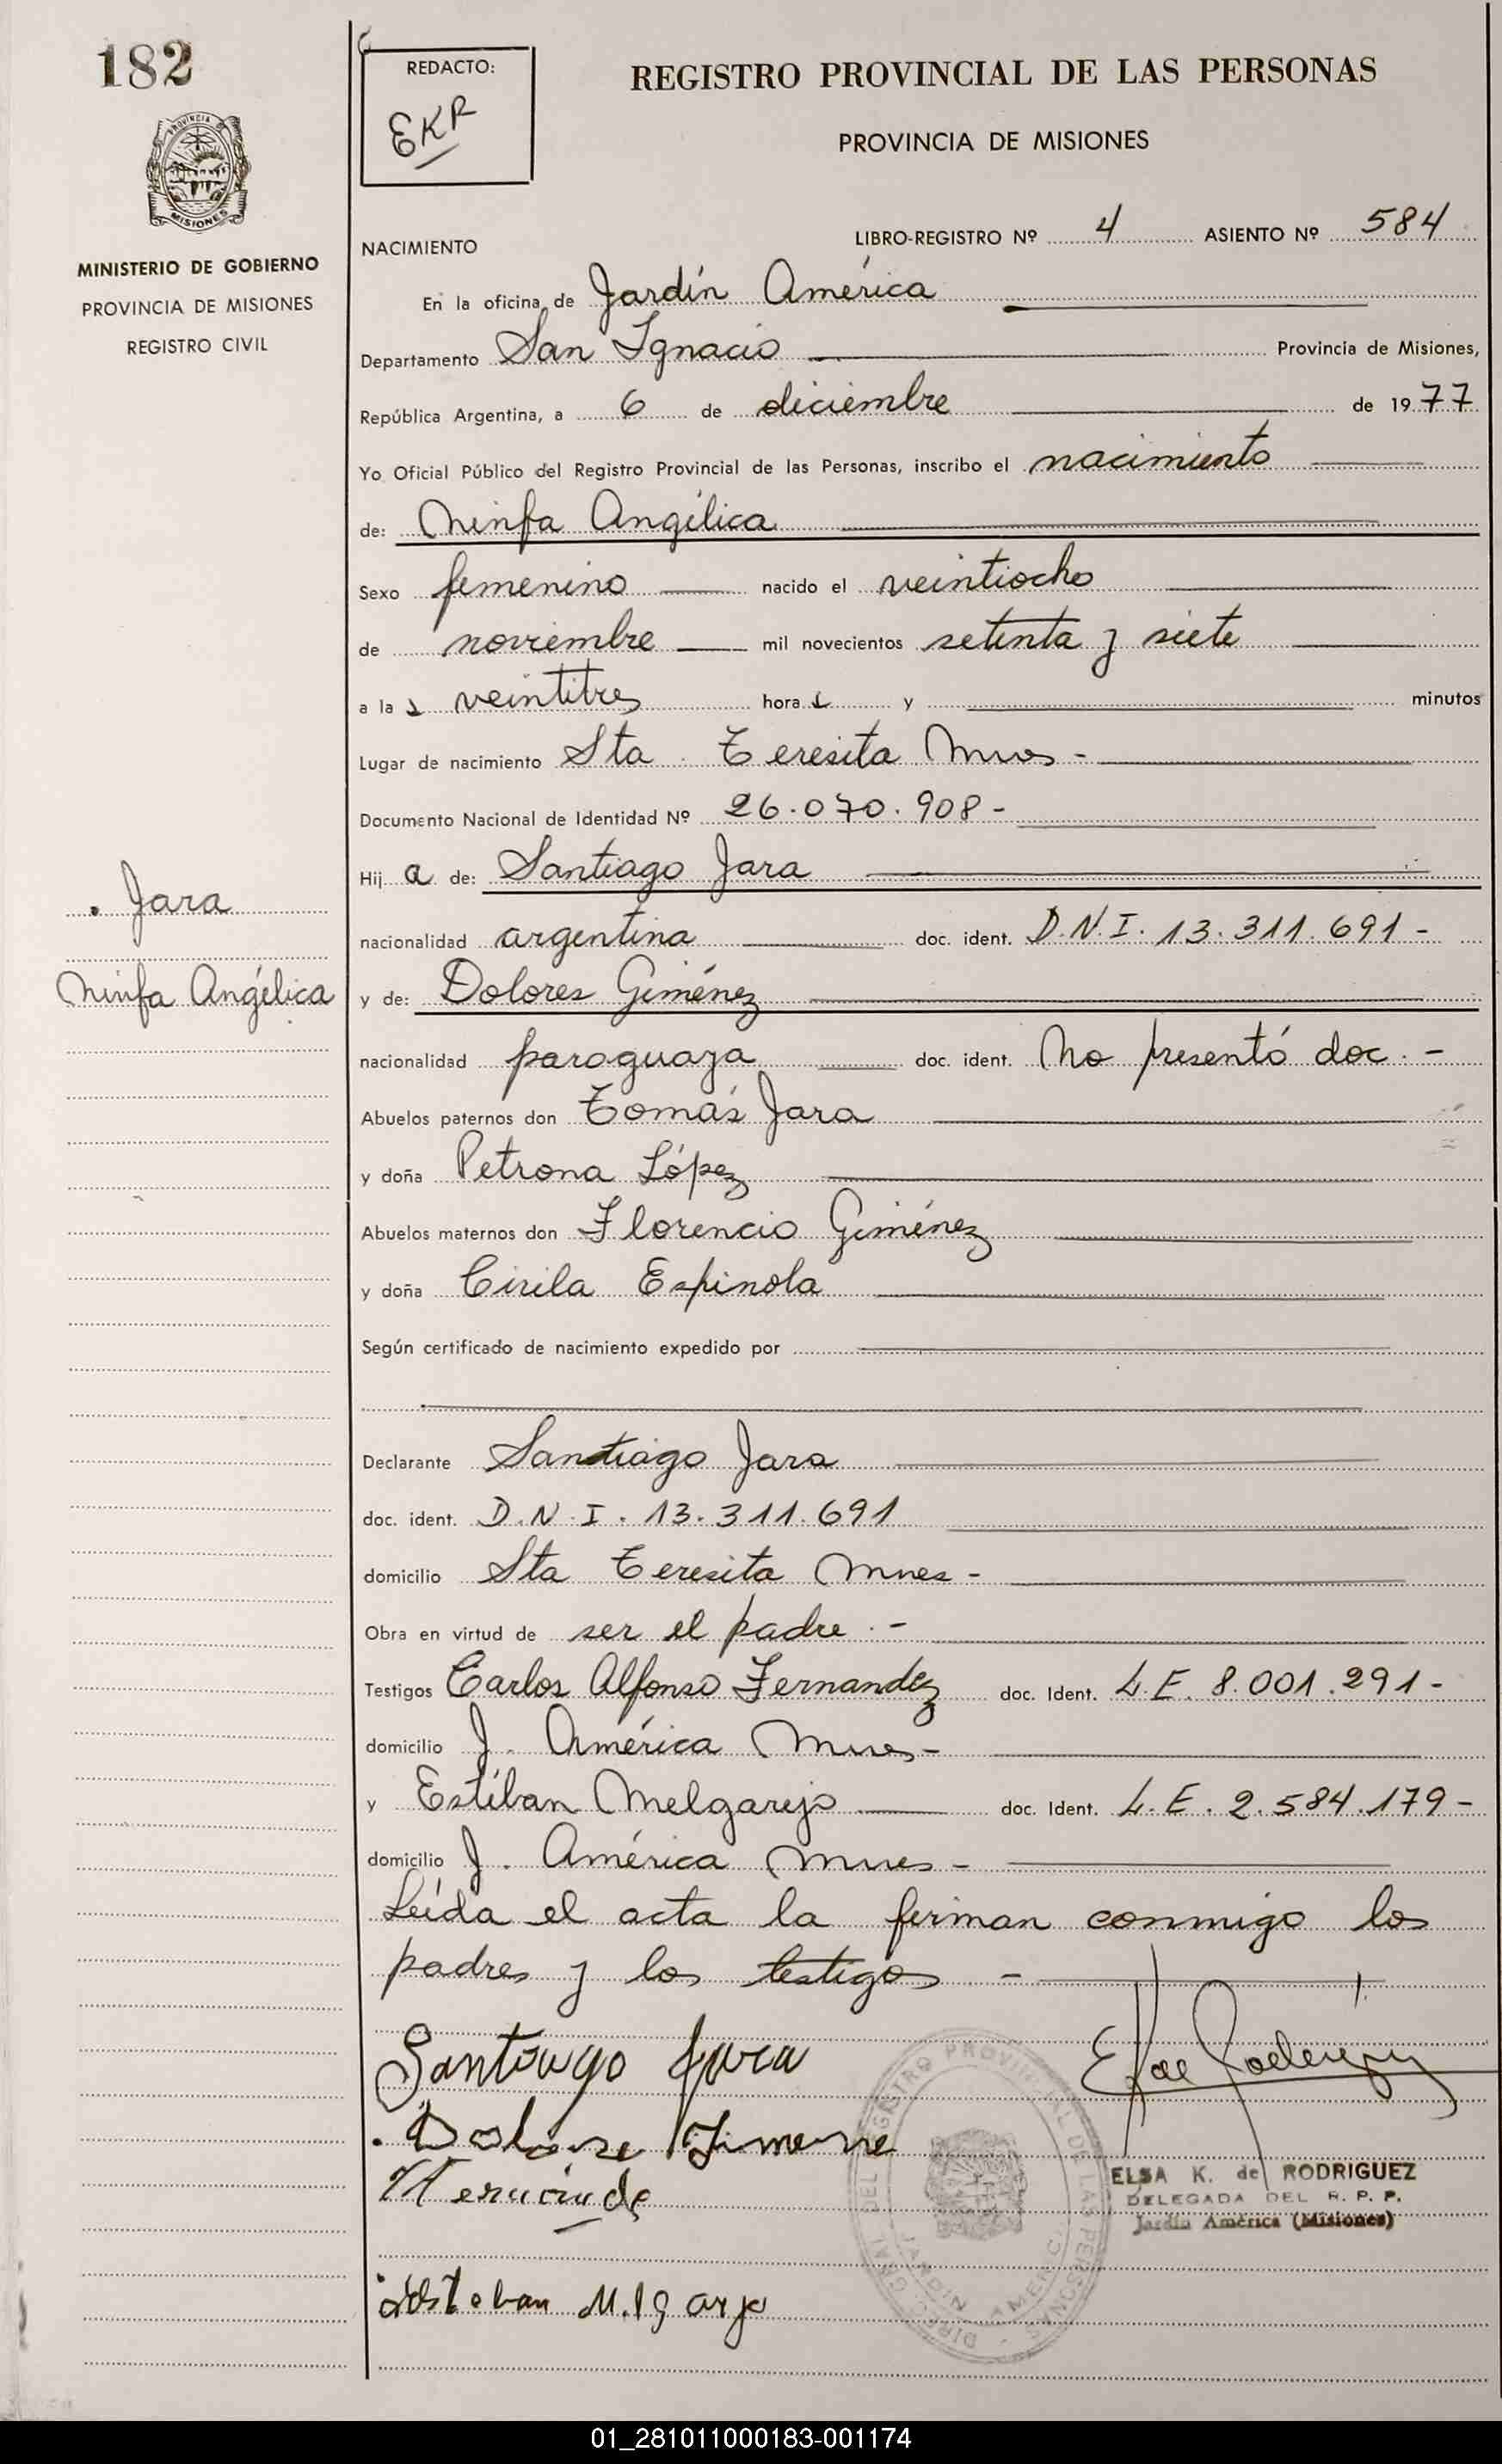 182
REDACTO:
EKR
REGISTRO PROVINCIAL DE LAS PERSONAS
PROVINCIA DE MISIONES
MISIONES
MINISTERIO DE GOBIERNO
PROVINCIA DE MISIONES
REGISTRO CIVIL
NACIMIENTO LIBRO-REGISTRO Nº 4 ASIENTO Nº 584
En la oficina de Jardín América
Departamento San Ignacio Provincia de Misiones,
República Argentina, a 6 de diciembre de 1977
Yo Oficial Público del Registro Provincial de las Personas, inscribo el nacimiento
de: Ninfa Angélica
Sexo femenino nacido el veintiocho
de noviembre mil novecientos setenta y siete
a las veintitres horas y minutos
Lugar de nacimiento Sta. Teresita Mnes -
Documento Nacional de Identidad Nº 26.070.908 -
Hija de: Santiago Jara
nacionalidad argentina doc. ident. D.N.I. 13.311.691 -
Jara
Ninfa Angélica
y de: Dolores Giménez
nacionalidad paraguaya doc. ident. No presentó doc. -
Abuelos paternos don Tomás Jara
y doña Petrona López
Abuelos maternos don Florencio Giménez
y doña Cirila Espinola
Según certificado de nacimiento expedido por
Declarante Santiago Jara
doc. ident. D.N.I. 13.311.691
domicilio Sta Teresita Mnes -
Obra en virtud de ser el padre. -
Testigos Carlos Alfonso Fernandez doc. Ident. L.E. 8.001.291 -
domicilio J. América Mnes -
y Estéban Melgarejo doc. Ident. L.E. 2.584.179 -
domicilio J. América Mnes -
Leída el acta la firman conmigo los
padres y los testigos -
Santiago Jara
ELSA K. de RODRIGUEZ
DELEGADA DEL R. P. P.
Jardín América (Misiones)
01_281011000183-001174